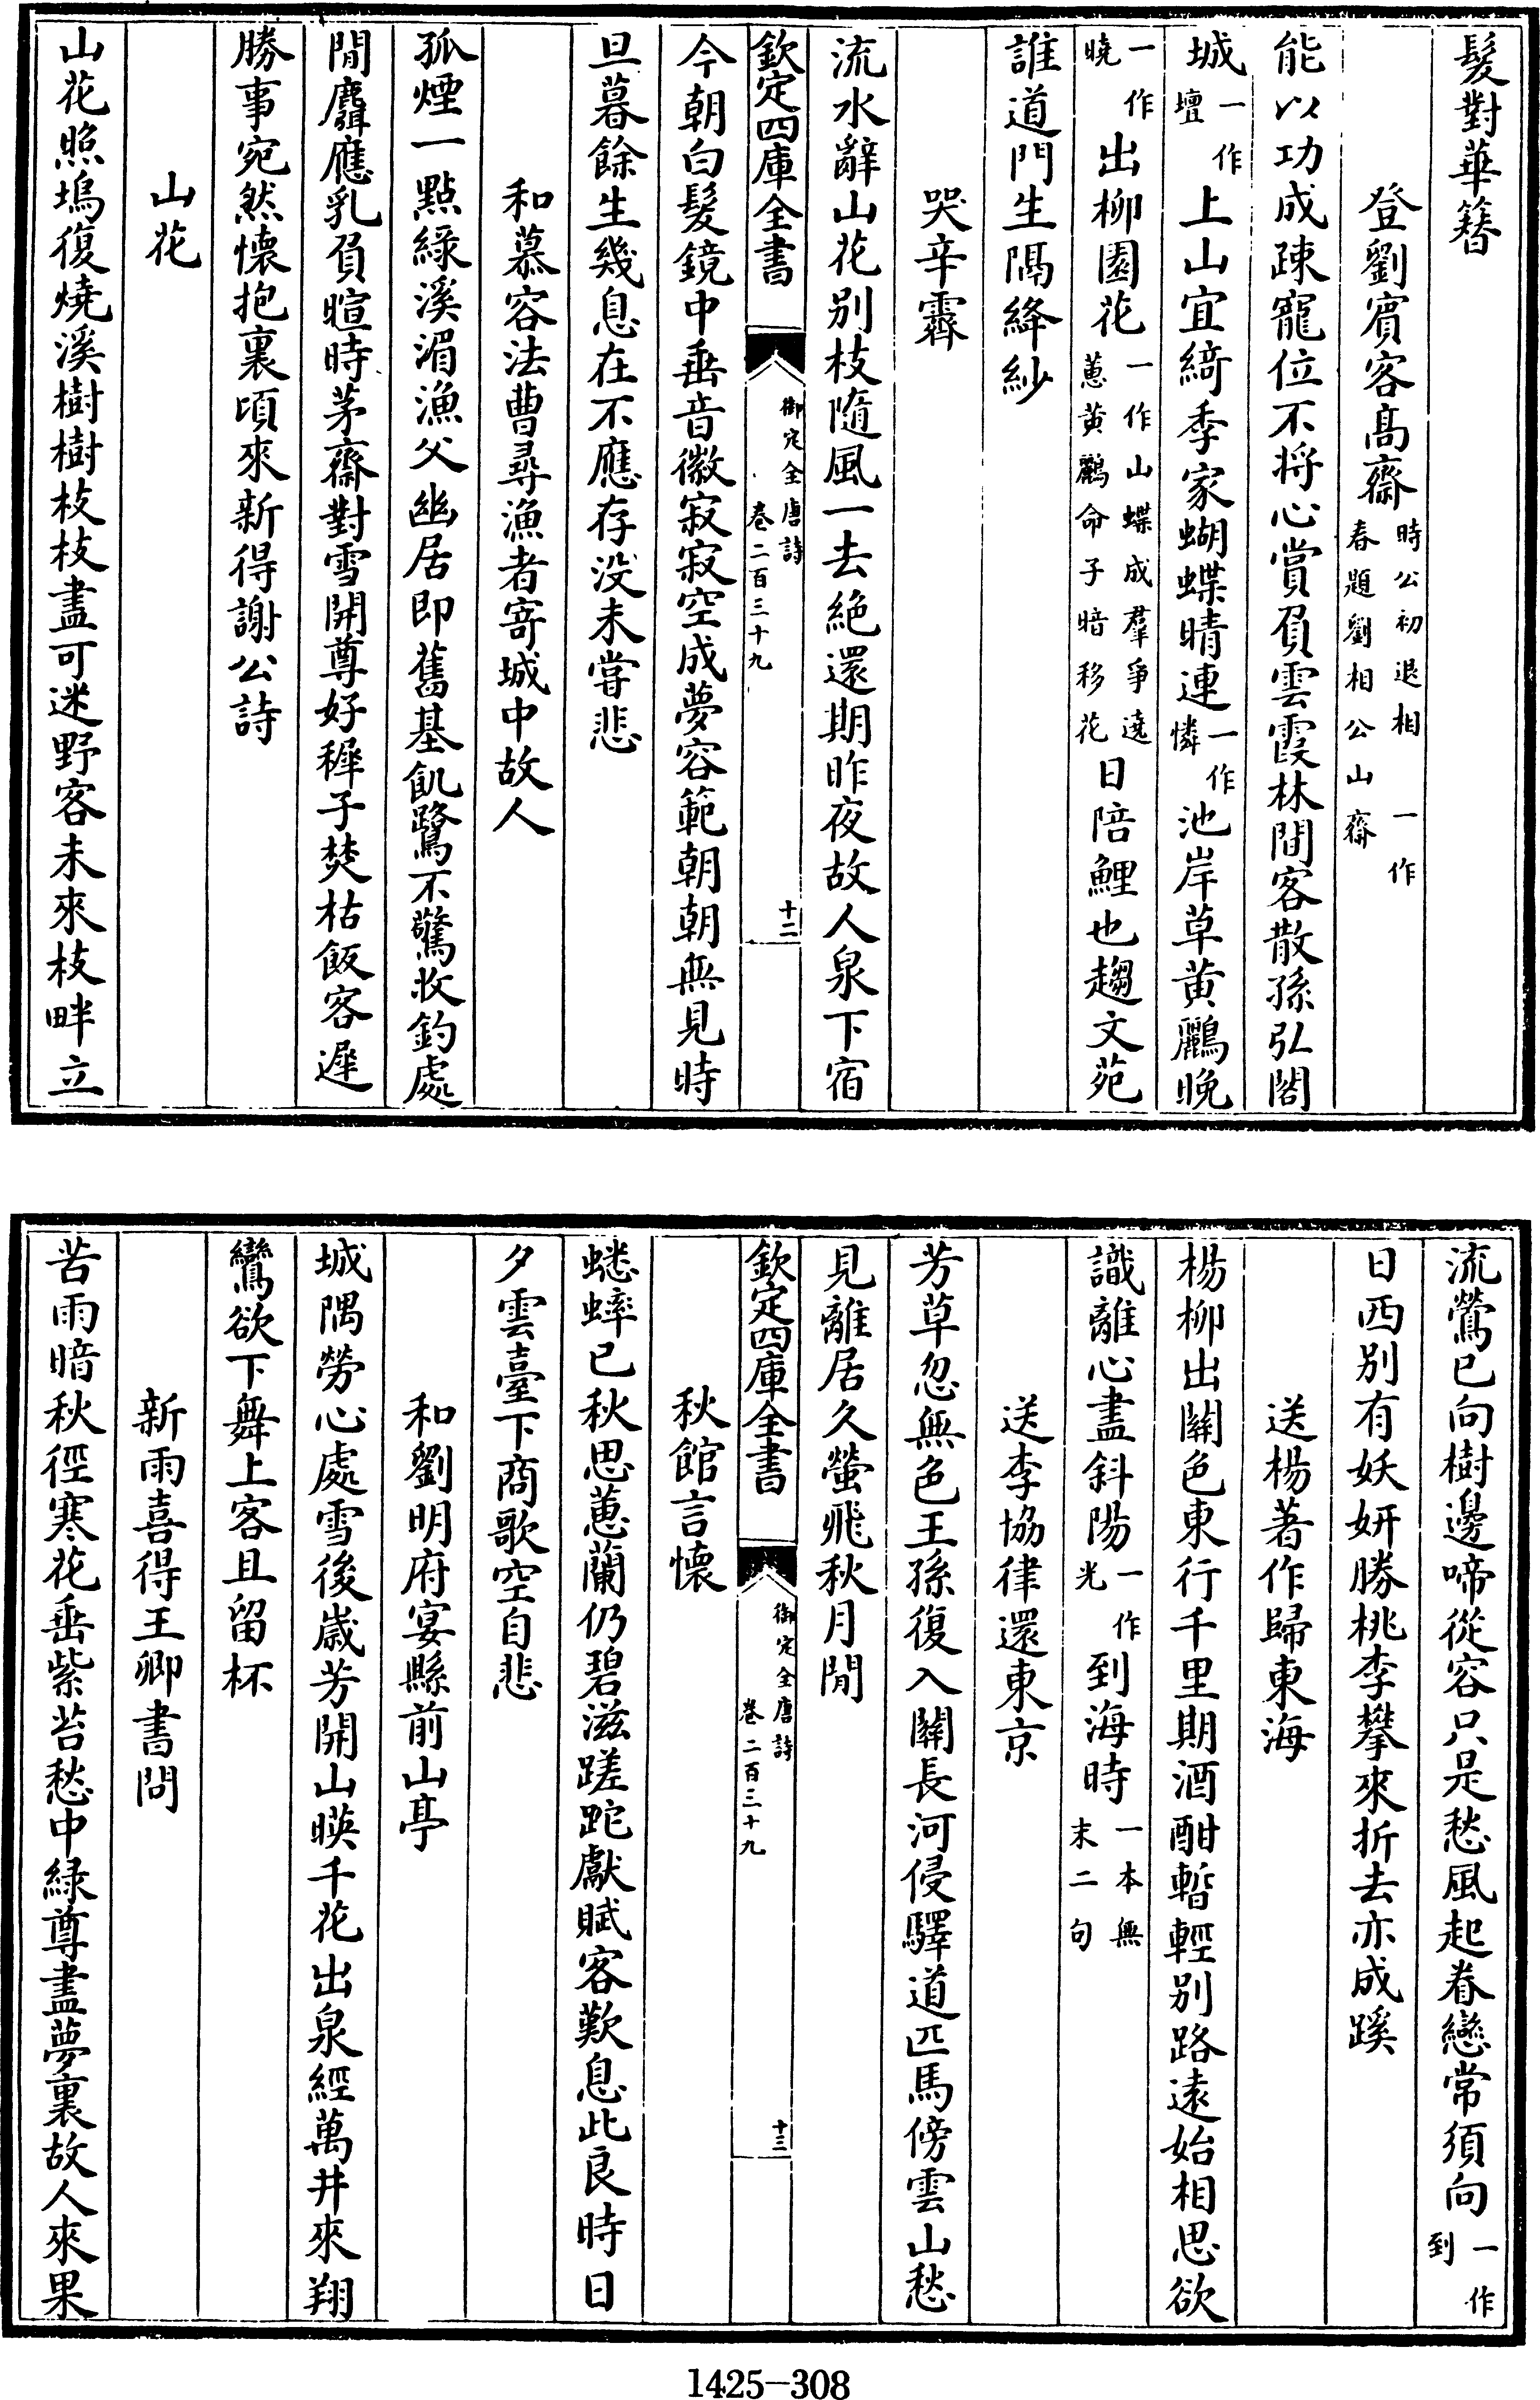 髮對華簪
登劉賓客髙齋時公初退相一作春題劉相公山齋
能以功成疎寵位不将心賞負雲霞林間客散孫弘閣
城一作壇上山宜綺季家蝴蝶晴連一作憐池岸草黄鸝晩
一作曉出柳園花一作山蝶成羣爭遶蕙黄鸝命子暗移花日陪鯉也趨文苑
誰道門生隔絳紗
哭辛霽
流水辭山花别枝隨風一去絶還期昨夜故人泉下宿
欽定四庫全書
御定全唐詩
卷二百三十九
十二
今朝白髮鏡中垂音徽寂寂空成夢容範朝朝無見時
旦暮餘生幾息在不應存没未甞悲
和慕容法曹尋漁者寄城中故人
孤煙一點綠溪湄漁父幽居即舊基飢鷺不驚收釣處
閒麛應乳負暄時茅齋對雪開尊好稺子焚枯飯客遲
勝事宛然懷抱裏頃來新得謝公詩
山花
山花照塢復燒溪樹樹枝枝盡可迷野客未來枝畔立
流鶯已向樹邊啼從容只是愁風起眷戀常須向一作到
日西别有妖妍勝桃李攀來折去亦成蹊
送楊著作歸東海
楊柳出關色東行千里期酒酣暫輕别路逺始相思欲
識離心盡斜陽一作光到海時一本無末二句
送李協律還東京
芳草忽無色王孫復入關長河侵驛道匹馬傍雲山愁
見離居久螢飛秋月閒
欽定四庫全書
御定全唐詩
卷二百三十九
十三
秋館言懷
蟋蟀已秋思蕙蘭仍碧滋蹉跎獻賦客歎息此良時日
夕雲臺下商歌空自悲
和劉明府宴縣前山亭
城隅勞心處雪後嵗芳開山暎千花出泉經萬井來翔
鸞欲下舞上客且留杯
新雨喜得王卿書問
苦雨暗秋徑寒花垂紫苔愁中緑尊盡夢裏故人來果
1425-308